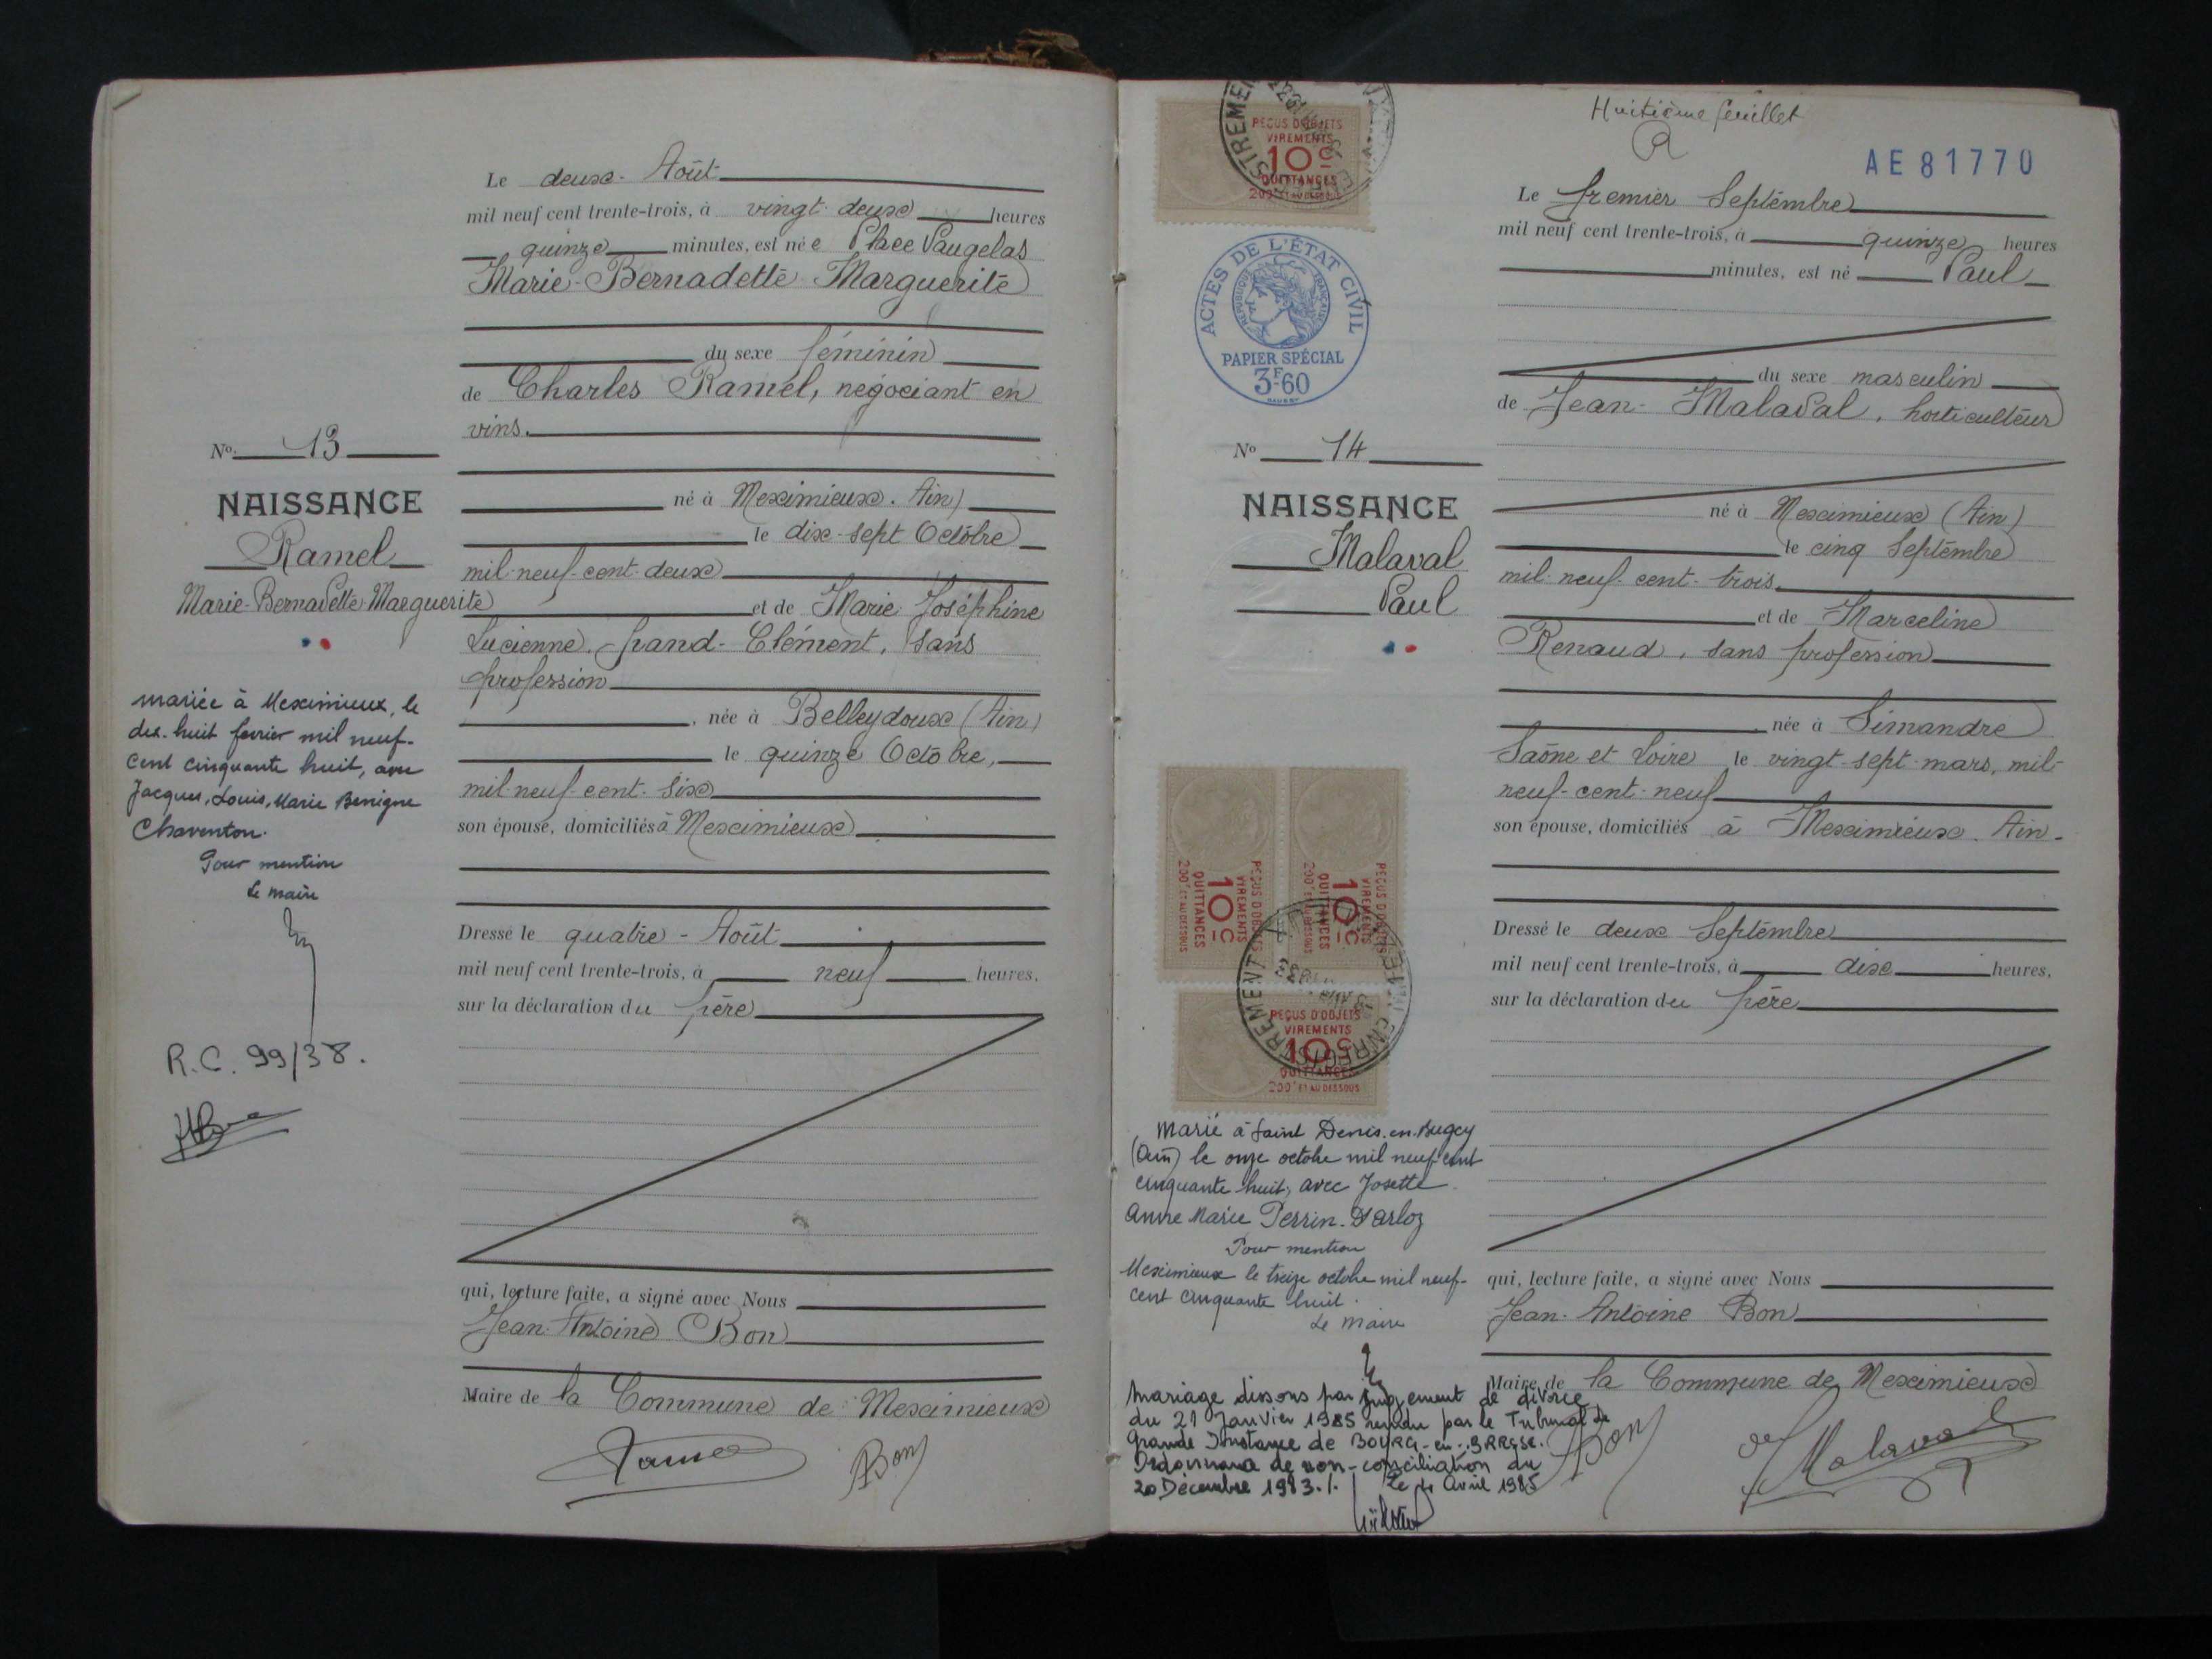 Le deux Août
mil neuf cent trente-trois, à vingt deux heures
quinze minutes, est née Place Vaugelas
Marie-Bernadette Marguerite
du sexe féminin
de Charles Ramel, négociant en
vins.
né à Meximieux. Ain)
le dix-sept Octobre
mil-neuf-cent-deux
et de Marie Joséphine
Lucienne Grand-Clément, sans
profession
, née à Belleydoux (Ain)
le quinze Octobre,
mil-neuf-cent-six
son épouse, domiciliés à Meximieux
Dressé le quatre - Août
mil neuf cent trente-trois, à neuf heures,
sur la déclaration du père
qui, lecture faite, a signé avec Nous
Jean-Antoine Bon
Maire de la Commune de Meximieux
Bon
No. 13
NAISSANCE
Ramel
Marie-Bernadette-Marguerite
mariée à Meximieux, le
dix-huit février mil neuf-
cent cinquante huit, avec
Jacques, Louis, Marie Benigne
Charenton.
Pour mention
Le maire
R.C. 99/38.
RECUS D'OBJETS
VIREMENTS
10c
QUITTANCES
200f ET AU DESSOUS
ACTES DE L'ÉTAT CIVIL
RÉPUBLIQUE FRANÇAISE
PAPIER SPÉCIAL
3F60
No 14
NAISSANCE
Malaval
Paul
RECUS D'OBJETS
VIREMENTS
10c
QUITTANCES
200f ET AU DESSOUS
RECUS D'OBJETS
VIREMENTS
10c
QUITTANCES
200f ET AU DESSOUS
RECUS D'OBJETS
VIREMENTS
10c
QUITTANCES
200f ET AU DESSOUS
ENREGISTREMENT
Marié à Saint Denis-en-Bugey
(Ain) le onze octobre mil neuf cent
cinquante huit, avec Josette
Anne Marie Perrin-Darloz
Pour mention
Meximieux le treize octobre mil neuf-
cent cinquante huit.
Le maire
Mariage dissous par jugement de divorce
du 21 Janvier 1985 rendu par le Tribunal de
Grande Instance de BOURG-en-BRESSE.
Ordonnance de non-conciliation du
20 Décembre 1983./. Le Avril 1985
Huitième feuillet
AE 81770
Le premier Septembre
mil neuf cent trente-trois, à quinze heures
minutes, est né Paul
du sexe masculin
de Jean Malaval, horticulteur
né à Meximieux (Ain)
le cinq Septembre
mil-neuf-cent-trois.
et de Marceline
Renaud, sans profession
née à Simandre
Saône et Loire le vingt-sept mars, mil-
neuf-cent-neuf
son épouse, domiciliés à Meximieux. Ain-
Dressé le deux Septembre
mil neuf cent trente-trois, à dix heures,
sur la déclaration du père
qui, lecture faite, a signé avec Nous
Jean-Antoine Bon
Maire de la Commune de Meximieux
Bon
Malaval